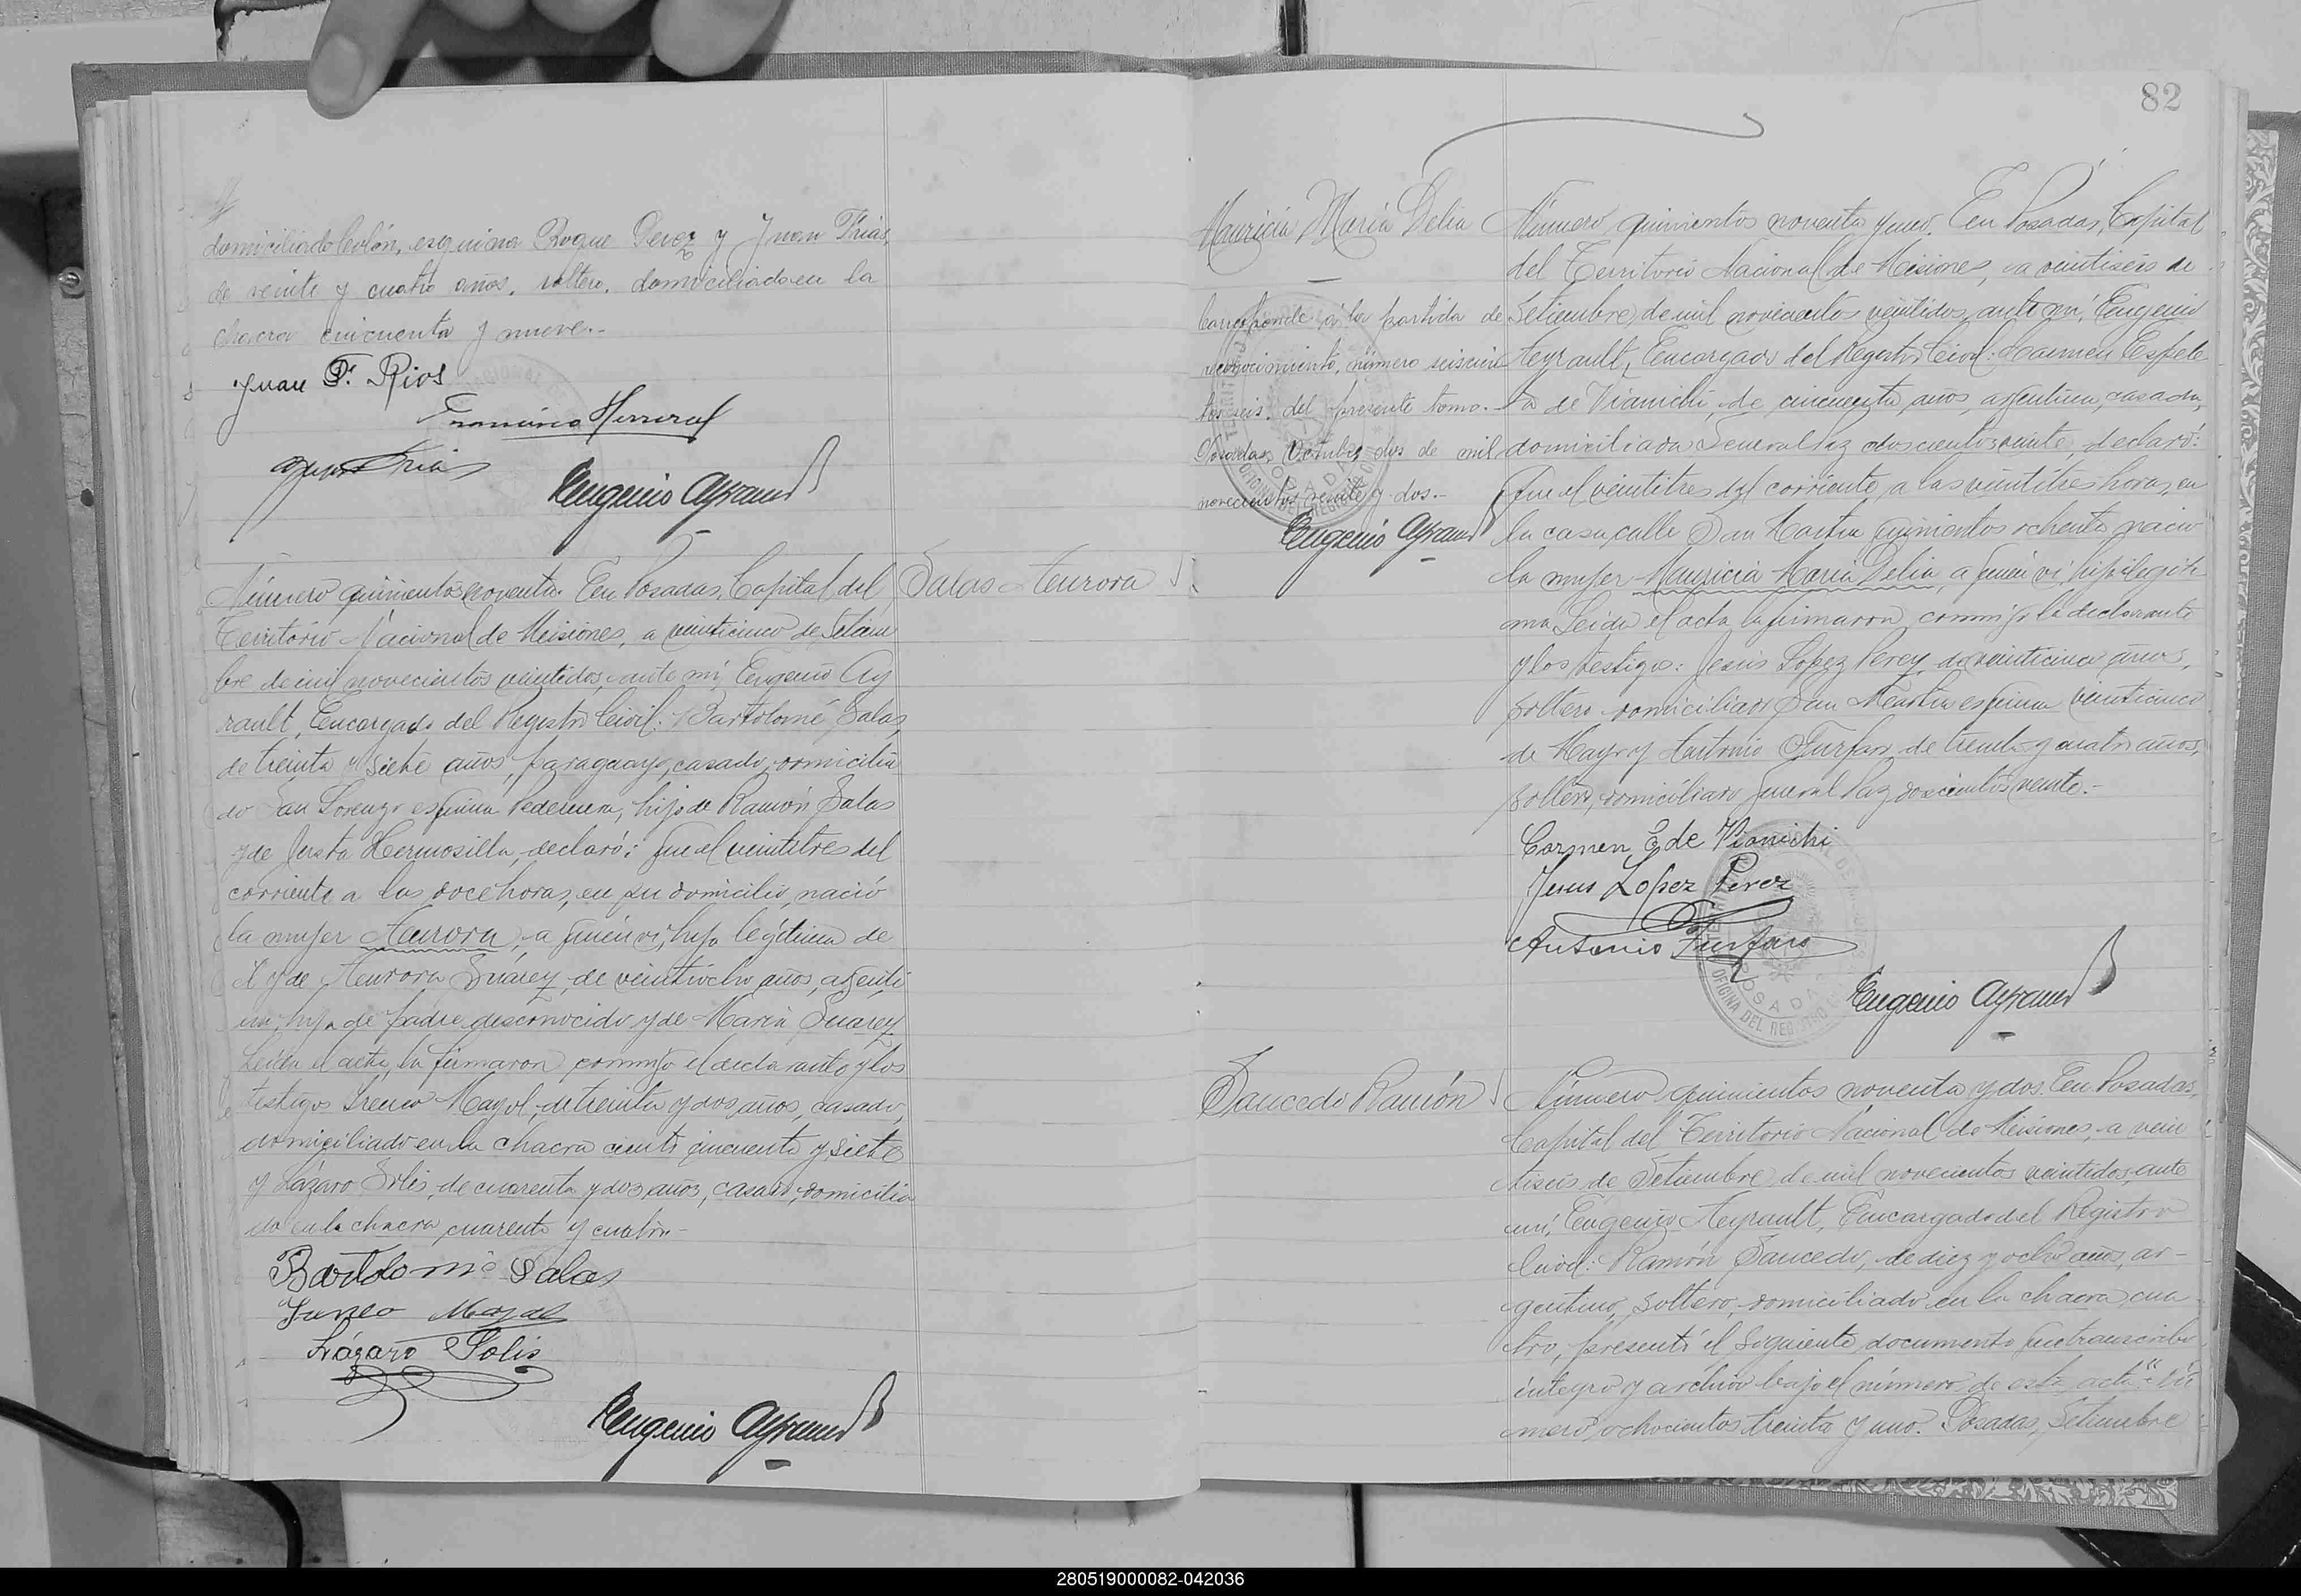 domiciliado Colón, esquina Roque Perez y Juan Frias,
de veinte y cuatro años, soltero, domiciliado en la
chacra cincuenta y nueve.-
Juan P. Rios
Francisco Herrera
Juan Frias
Eugenio Ayrault
Número quinientos noventa. En Posadas, Capital del
Territorio Nacional de Misiones, a veinticinco de Setiem
bre de mil novecientos veintidos, ante mí, Eugenio Ay
rault, Encargado del Registro Civil: Bartolomé Salas,
de treinta y siete años, paraguayo, casado, domicilia
do San Lorenzo esquina Pedernera, hijo de Ramón Salas
y de Justa Hermosilla, declaró: que el veintitres del
corriente a las doce horas, en su domicilio, nació
la mujer Aurora, a quién vi, hija legítima de
él y de Aurora Suarez, de veintiocho años, argenti
na, hija de padre desconocido y de María Suarez
Leída el acta, la firmaron conmigo el declarante y los
testigos Ireneo Mayol, de treinta y dos años, casado,
domiciliado en la chacra ciento cincuenta y siete
y Lázaro Solis, de cuarenta y dos años, casado, domicilia
do en la chacra cuarenta y cuatro.-
Bartolomé Salas
Ireneo Mayol
Lázaro Solis
Eugenio Ayrault
Salas Aurora
82
Mauricia María Delia
Corresponde á la partida de
reconocimiento, número seiscien
tos seis, del presente tomo.-
Posadas, Octubre dos de mil
novecientos veinte y dos.-
Eugenio Ayrault
Número quinientos noventa y uno. En Posadas, Capital
del Territorio Nacional de Misiones, a veintiseis de
Setiembre de mil novecientos veintidos, ante mí, Eugenio
Ayrault, Encargado del Registro Civil: Carmen Espele
ta de Vianichi, de cincuenta años, argentina, casada,
domiciliada General Paz doscientos veinte, declaró:
Que el veintitres del corriente, a las veintitres horas, en
la casa calle San Martin quinientos ochenta nació
la mujer Mauricia María Delia, a quien vi, hija ilegiti
ma. Leída el acta la firmaron conmigo la declarante
y los testigos: Jesús Lopez Perez, de veinticinco años,
soltero domiciliado San Martin esquina veinticinco
de Mayo y Antonio Furfaro, de treinta y cuatro años,
soltero, domiciliado General Paz doscientos veinte.-
Carmen E de Vianichi
Jesus Lopez Perez
Antonio Furfaro
Eugenio Ayrault
Saucedo Ramón
Número quinientos noventa y dos. En Posadas,
Capital del Territorio Nacional de Misiones, a vein
tiseis de Setiembre de mil novecientos veintidos, ante
mí, Eugenio Ayrault, Encargado del Registro
Civil: Ramón Saucedo, de diez y ocho años, ar-
gentino, soltero, domiciliado en la chacra cua
tro, presentó el siguiente documento que transcribo
íntegro y archivo bajo el número de esta acta: "Nú
mero ochocientos treinta y uno. Posadas, Setiembre
280519000082-042036